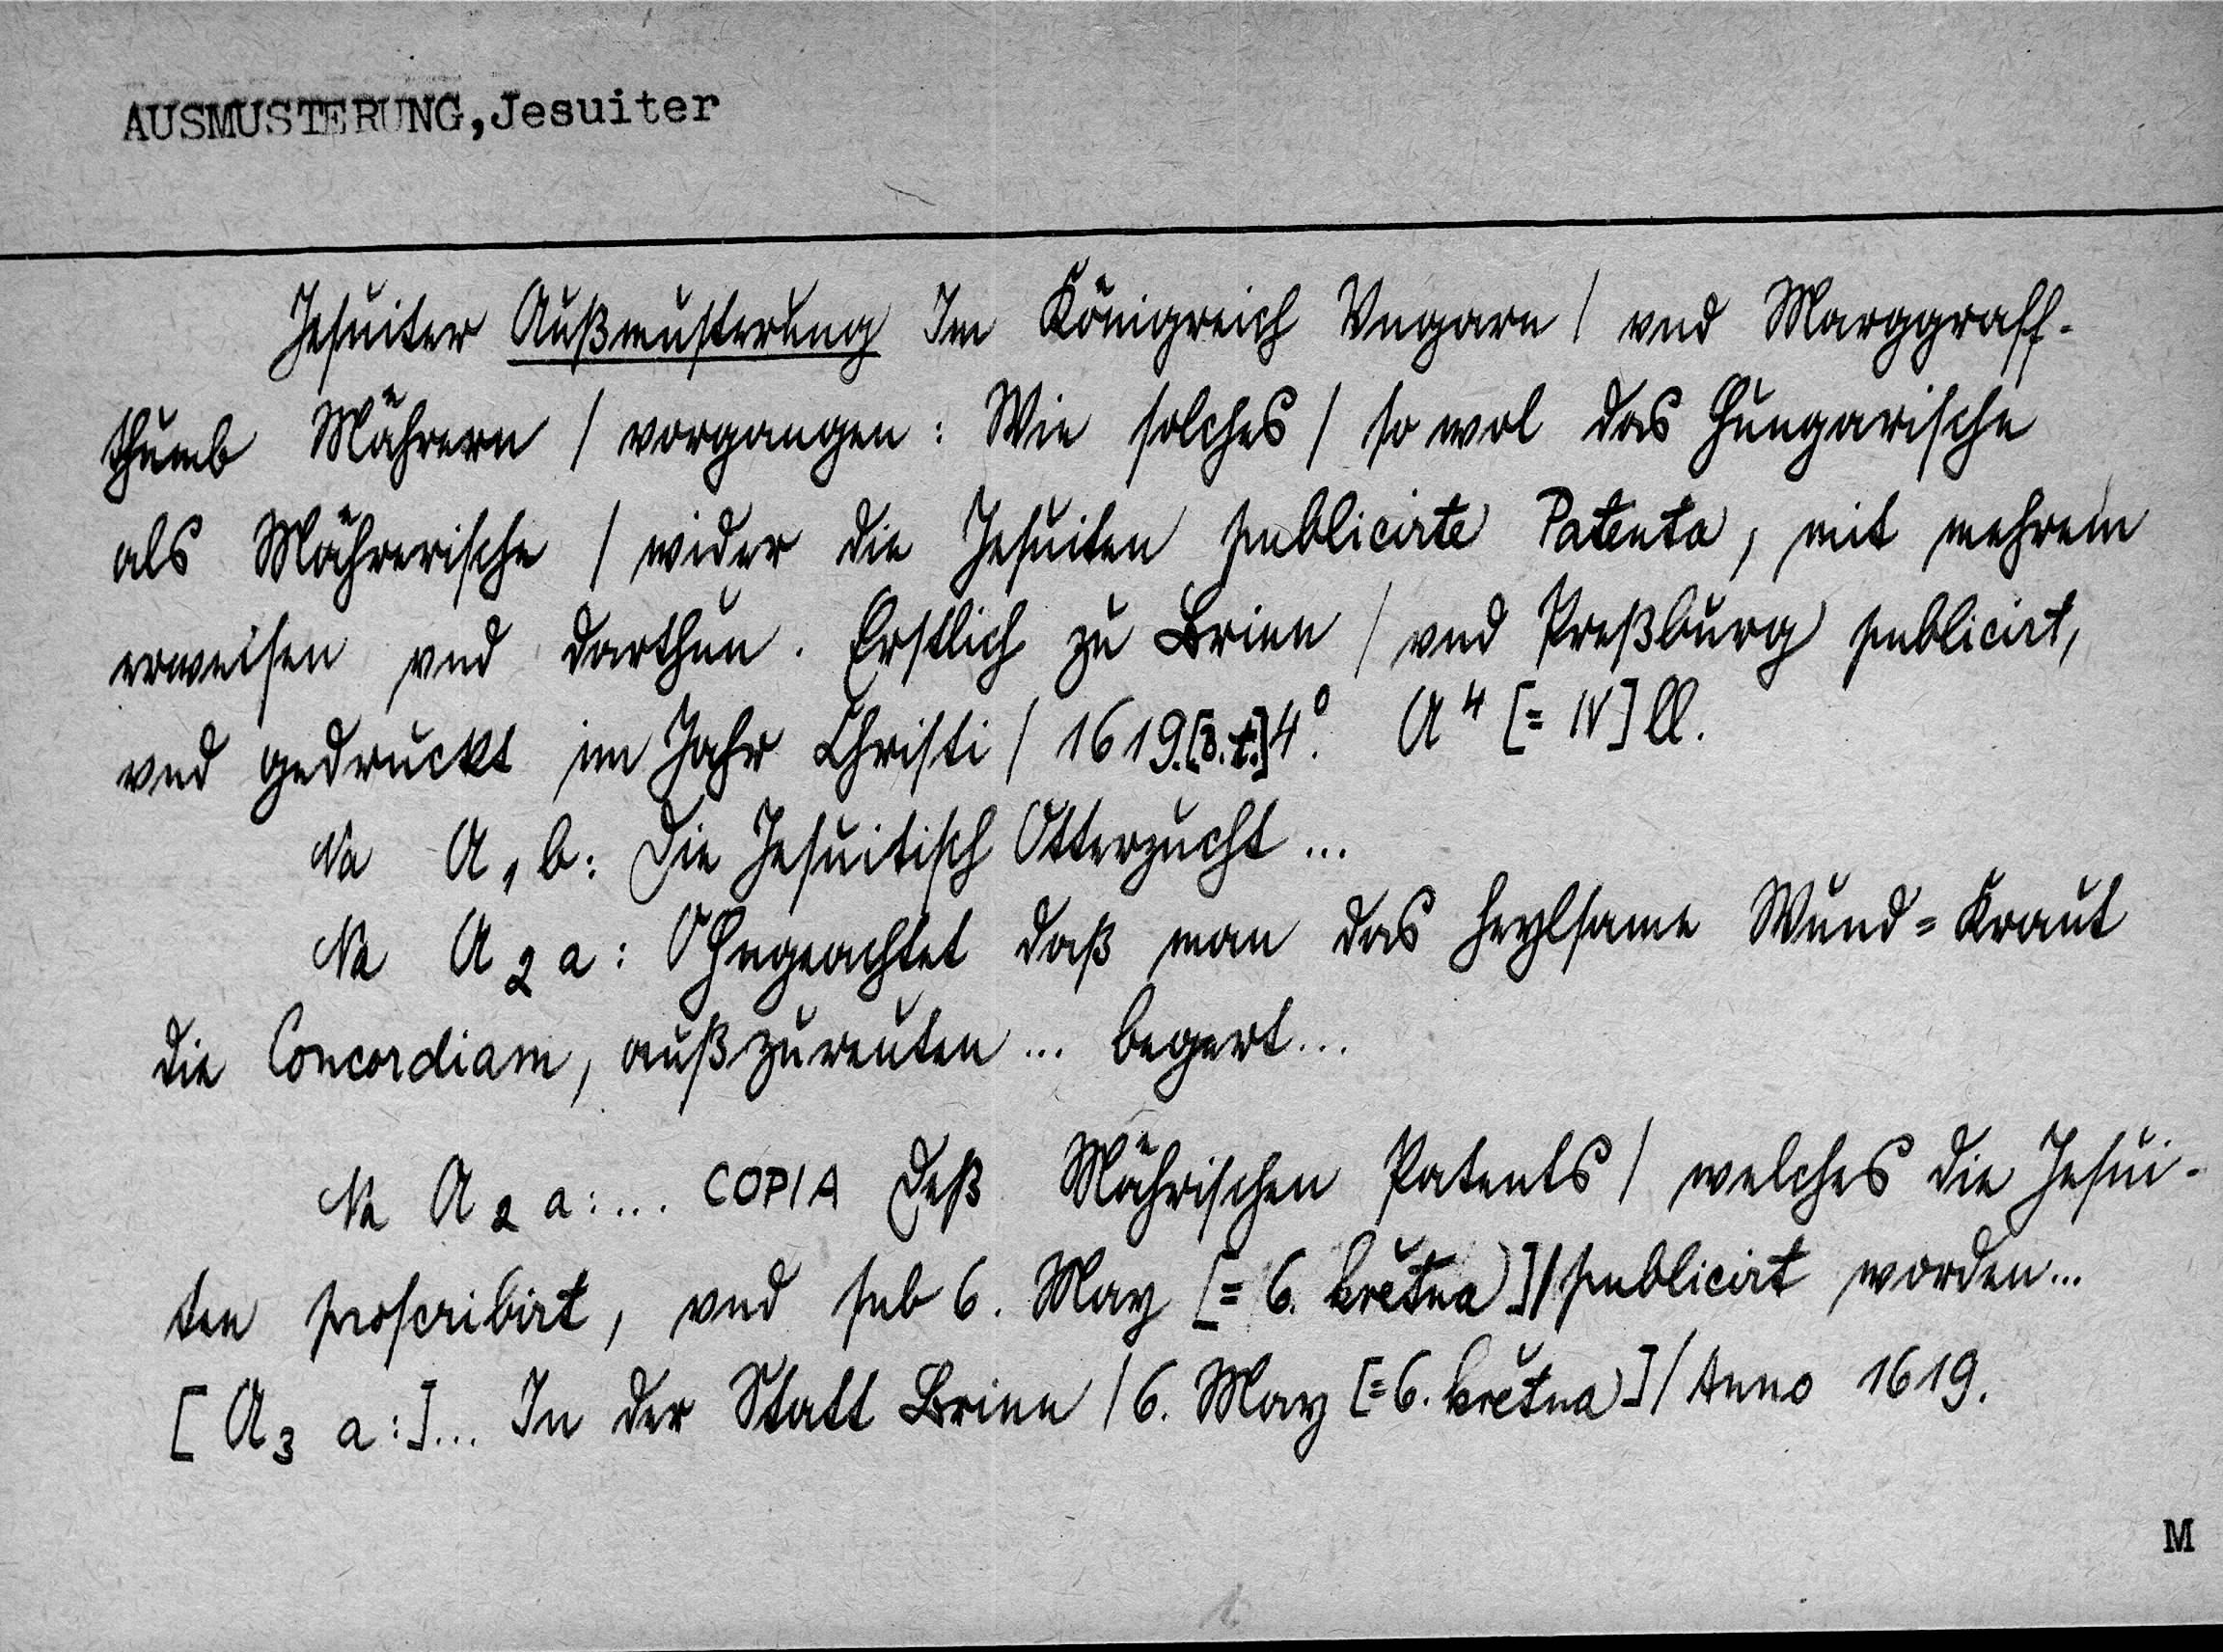 AUSMUSTERUNG, Jesuiter
Jesuiter Außmusterung Im Königreich Vngarn / vnd Marggraff-
thumb Mährern / vorgangen: Wie solches / so wol das Hungarische
als Mährerische / wider die Jesuiten publicirte Patenta, mit mehrem
erweisen vnd darthun. Erstlich zu Brinn / vnd Preßburg publicirt,
vnd gedruckt im Jahr Christi / 1619. [b.t.] 4°. A⁴ [= IV] ll.
Na A₁b: Die Jesuitisch Otterzucht ...
Na A₂a: Ohngeachtet daß man das heylsame Wund=Kraut
die Concordiam, außzureuten ... begert...
Na A₂a: ... COPIA Deß Mährischen Patents / welches die Jesui-
ten proscribirt, vnd sub 6. May [= 6. května] / publicirt worden...
[A₃ a:] ... In der Statt Brinn / 6. May [=6. května] / Anno 1619.
M